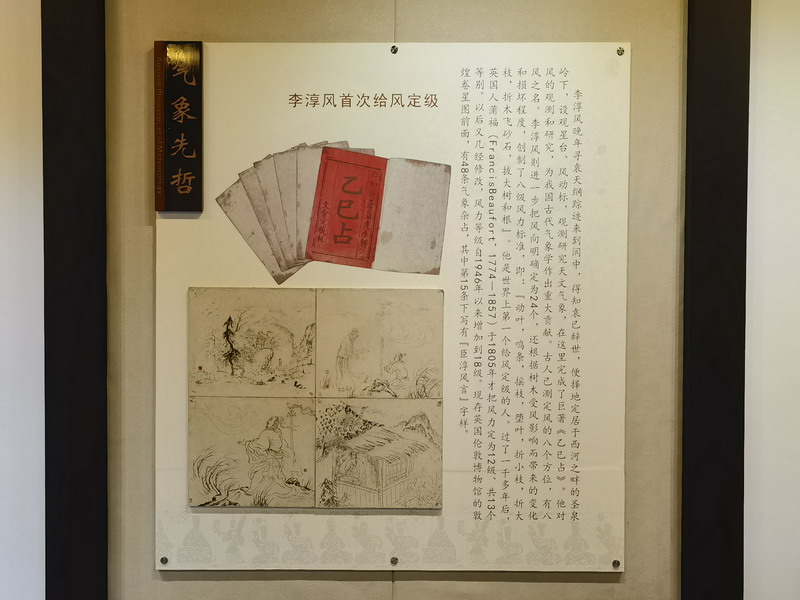 气象先哲
李淳风首次给风定级
乙巳占
李淳风晚年寻袁天纲踪迹来到阆中，得知袁已辞世，便择地定居于西河之畔的圣泉
岭下，设观星台、风动标，观测研究天文气象，在这里完成了巨著《乙巳占》。他对
风的观测和研究，为我国古代气象学作出重大贡献。古人已测定风的八个方位，有八
风之名。李淳风则进一步把风向明确定为24个，还根据树木受风影响而带来的变化
和损坏程度，创制了八级风力标准，即：『动叶，鸣条，摇枝，堕叶，折小枝，折大
枝，折木飞砂石，拔大树和根』。他是世界上第一个给风定级的人。过了一千多年后，
英国人蒲福（FrancisBeaufort，1774—1857）于1805年才把风力定为12级、共13个
等别。以后又几经修改，风力等级自1946年以来增加到18级。现存英国伦敦博物馆的敦
煌卷星图前面，有48条气象杂占，其中第15条下写有『臣淳风言』字样。